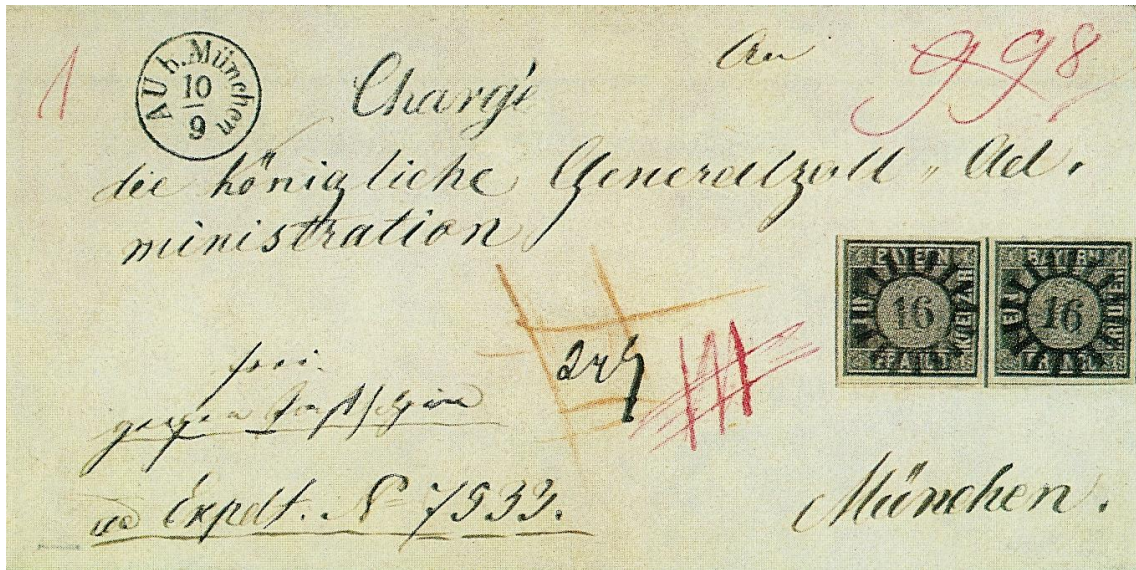 1
AU b. München
10
9
Chargé
An
998
die königliche Generalzoll „ Ad.
ministration
BAYERN
BAYERN
16
16
frei.
gegen
Expdt. No 7933.
München.